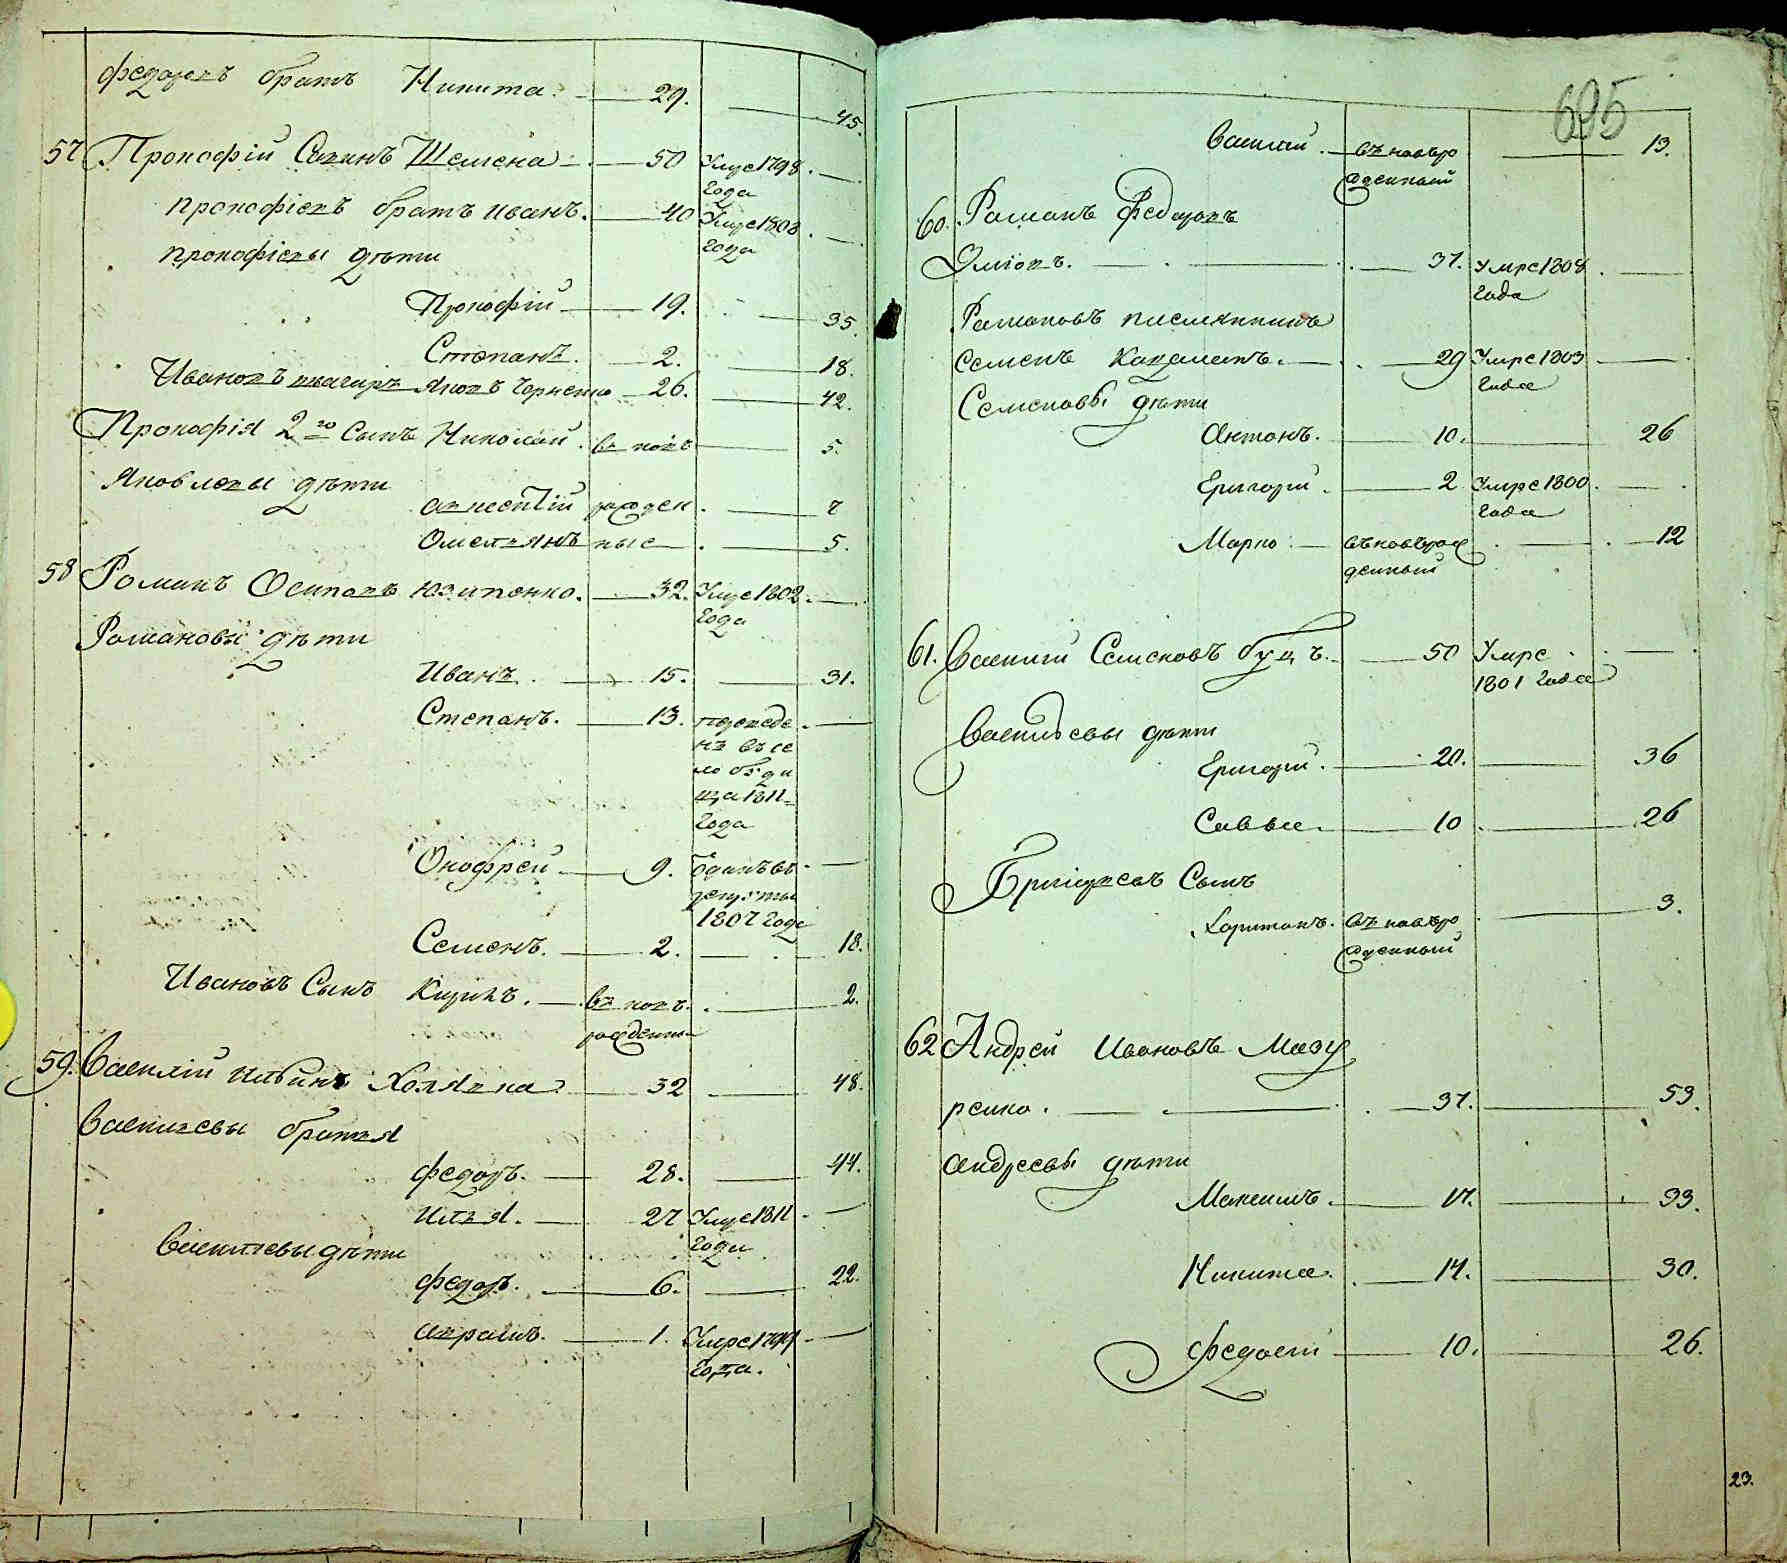 Федоровъ братъ Никита. 29. 45.
57 Прокофій Савинъ Шемена 50 Умре 1798
года
Прокофіевъ братъ Иванъ. 40 Умре 1808
года
Прокофіевы дѣти
Прокофій 19. 35.
Степанъ. 2. 18.
Ивановъ Яковъ Черненко 26. 42.
Прокофія 2го сынъ Николай. въ новѣ 5.
Яковлевы дѣти
рожден 7
Омельянъ ные 5.
58 Романъ Осиповъ Юзипенко. 32. Умре 1802
года
Романовы дѣти
Иванъ. 15. 31.
Степанъ. 13. переведе
нъ въ се
ло
1811
года
Онофрей 9. Отданъ въ
рекруты
1807 года
Семенъ. 2. 18.
Ивановъ Сынъ Кирикъ. въ новѣ 2.
рожденны
59. Василій Ильинъ Холявка 32 48.
Васильевы братья
Федоръ. 28. 44.
Илья. 27 Умре 1811
года
Васильевы дѣти
Федоръ. 6. 22.
Аврамъ. 1. Умре 1799
года.
695
Василій. въ новѣро 13.
жденный
60. Романъ Федоровъ
37. Умре 1808
года
Романовъ племянникъ
Семенъ 29 Умре 1803
года
Семеновы дѣти
Антонъ. 10. 26
Григорій. 2 Умре 1800
года
Марко въ новѣрож 12
денный
61. Василій Семеновъ Буцъ. 50 Умре
1801 года
Васильевы дѣти
Григорій. 20. 36
Савва. 10 26
Григорьевъ Сынъ
Харитонъ. въ новѣро 3.
жденный
62 Андрей Ивановъ Мазу
ренко. 37. 53.
Андреевы дѣти
Максимъ. 17. 33.
Никита. 14. 30.
Федосій 10. 26.
23.